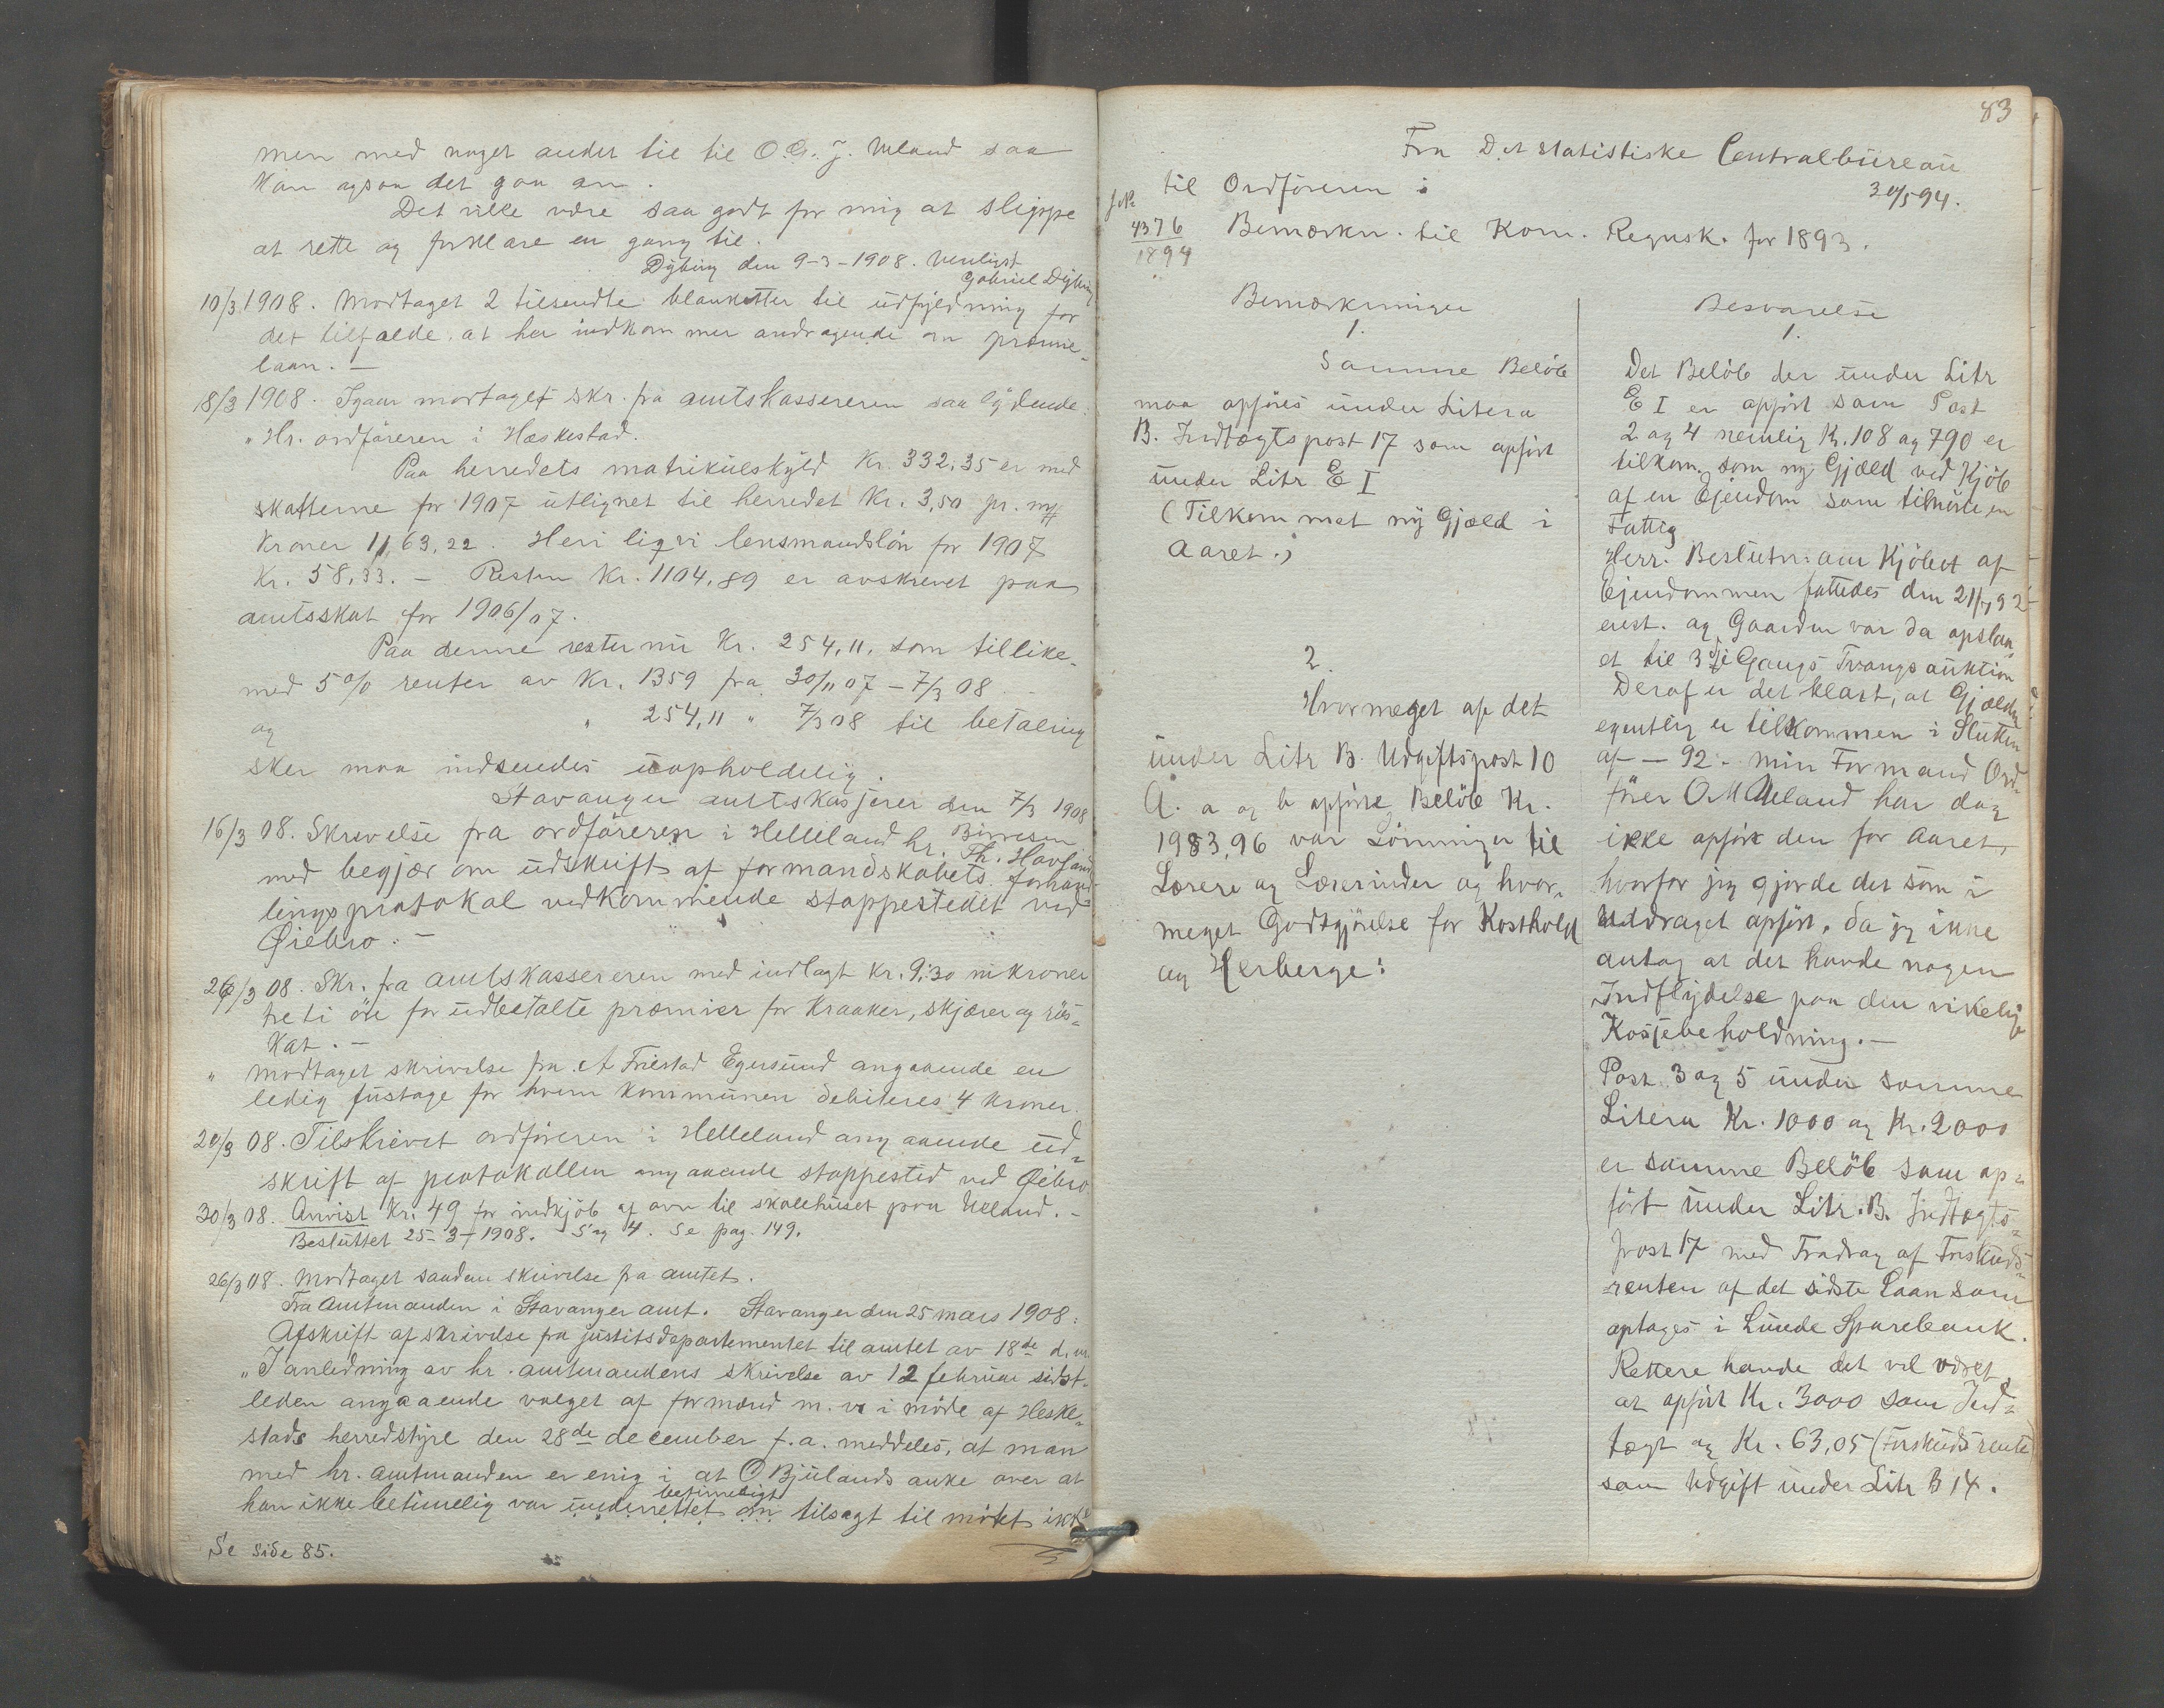 men med noget andet til til O.G.J. Ueland saa
kan ogsaa det gaa an.
Det vilde være saa godt for mig at slippe
at rette og forklare en gang til.
Dybing den 9-3-1908. Venligst
Gabriel Dybing
10/3 1908. Modtaget 2 tilsendte blanketter til udfyldning for
det tilfælde, at her indkommer andragende om præmie-
laan. –
18/3 1908. Igaar mottaget skr. fra amtskassereren saa lydende:
"Hr. ordføreren i Heskestad.
Paa herredets matrikulskyld Kr. 332,35 er med
skatterne for 1907 utlignet til herredet Kr. 3,50 pr.
Kroner 1163,22. Heri ligger lensmandsløn for 1907
Kr. 58,33. – Resten Kr. 1104,89 er avskrevet paa
amtsskat for 1906/07.
Paa denne rester nu Kr. 254,11, som tillike-
med 5% renter av Kr. 1359 fra 30/11 07 – 7/3 08
og " 254,11 " 7/3 08 til betaling
sker maa indsendes uopholdelig.
Stavanger amtskasserer den 7/3 1908
16/3 08. Skrivelse fra ordføreren i Helleland hr. Th. Havsand
med begjær om udskrift af formandskabets forhand-
lingsprotokol vedkommende stoppestedet ved
Øiebro. –
26/3 08. Skr. fra amtskassereren med indlagt kr. 9,30 ni kroner
treti øre for udbetalte præmier for Kraaker, skjærer og røs-
kat. –
" Modtaget skrivelse fra A Friestad Egersund angaaende en
ledig fustage for hvem kommunen debiteres 4 kroner.
20/3 08. Tilskrevet ordføreren i Helleland angaaende ud-
skrift af protokollen angaaende stoppested ved Øiebro
30/3 08. Anvist Kr. 49 for indkjøb af ovn til skolehuset paa Ueland. –
Besluttet 25-3-1908. Sag 4. Se pag. 149.
26/3 08. Modtaget saadan skrivelse fra amtet.
Fra Amtmanden i Stavanger amt. Stavanger den 25 mars 1908:
Afskrift af skrivelse fra justitsdepartementet til amtet av 18de d.m.
"I anledning av hr. amtmandens skrivelse av 12 februar sidst-
leden angaaende valget af formænd m.v. i møde af Heske-
stads herredstyre den 28de december f.a. meddeles, at man
med hr. amtmanden er enig i at O Bjulands anke over at
betimeligt
han ikke betimelig var underrettet om tilsagt til mødet ikke
Se side 85.
83
Fra Det statistiske Centralbureau
til Ordføreren i
30/5 94.
J.No
4376
1894
Bemærkn. til Kom. Regnsk. for 1893.
Bemærkninger
1.
Samme Beløb
maa opføres under Litera
B. Indtægtspost 17 som opført
under Litr E I
(Tilkommet ny Gjæld i
Aaret.)
2.
Hvormeget af det
under Litr B. Udgiftspost 10
A. a og b opførte Beløb Kr.
1983,96 var Lønninger til
Lærere og Lærerinder og hvor-
meget Godtgjørelse for Kosthold
og Herberge:
Besvarelse
1.
Det Beløb der under Litr
E I er opført som Post
2 og 4 nemlig Kr. 108 og 790 er
tilkom. som ny Gjæld ved Kjøb
af en Ejendom som tilhørte en
Fattig
Herr. Beslutn: om Kjøbet af
Ejendommen fattedes den 21/7 92
enst. og Gaarden var da opslaa-
et til 3die Gangs Tvangsauktion
Deraf er det klart, at Gjælden
egentlig er tilkommen i Slutten
af – 92. Min Formand Ord-
fører O M Ueland har dog
ikke opført den for Aaret,
hvorfor jeg gjorde det som i
Uddraget opført, da jeg ikke
antog at det havde nogen
Indflydelse paa den virkelige
Kassebeholdning. –
Post 3 og 5 under samme
Litera Kr. 1000 og Kr. 2000
er samme Beløb som op-
ført under Litr. B. Indtægts-
post 17 med Fradrag af Forskuds-
renten af det sidste Laan som
optages i Lunde Sparebank.
Rettere havde det vel været
at opført Kr. 3000 som Ind-
tægt og Kr. 63,05 (Forskudsrente)
som Udgift under Litr B 14.